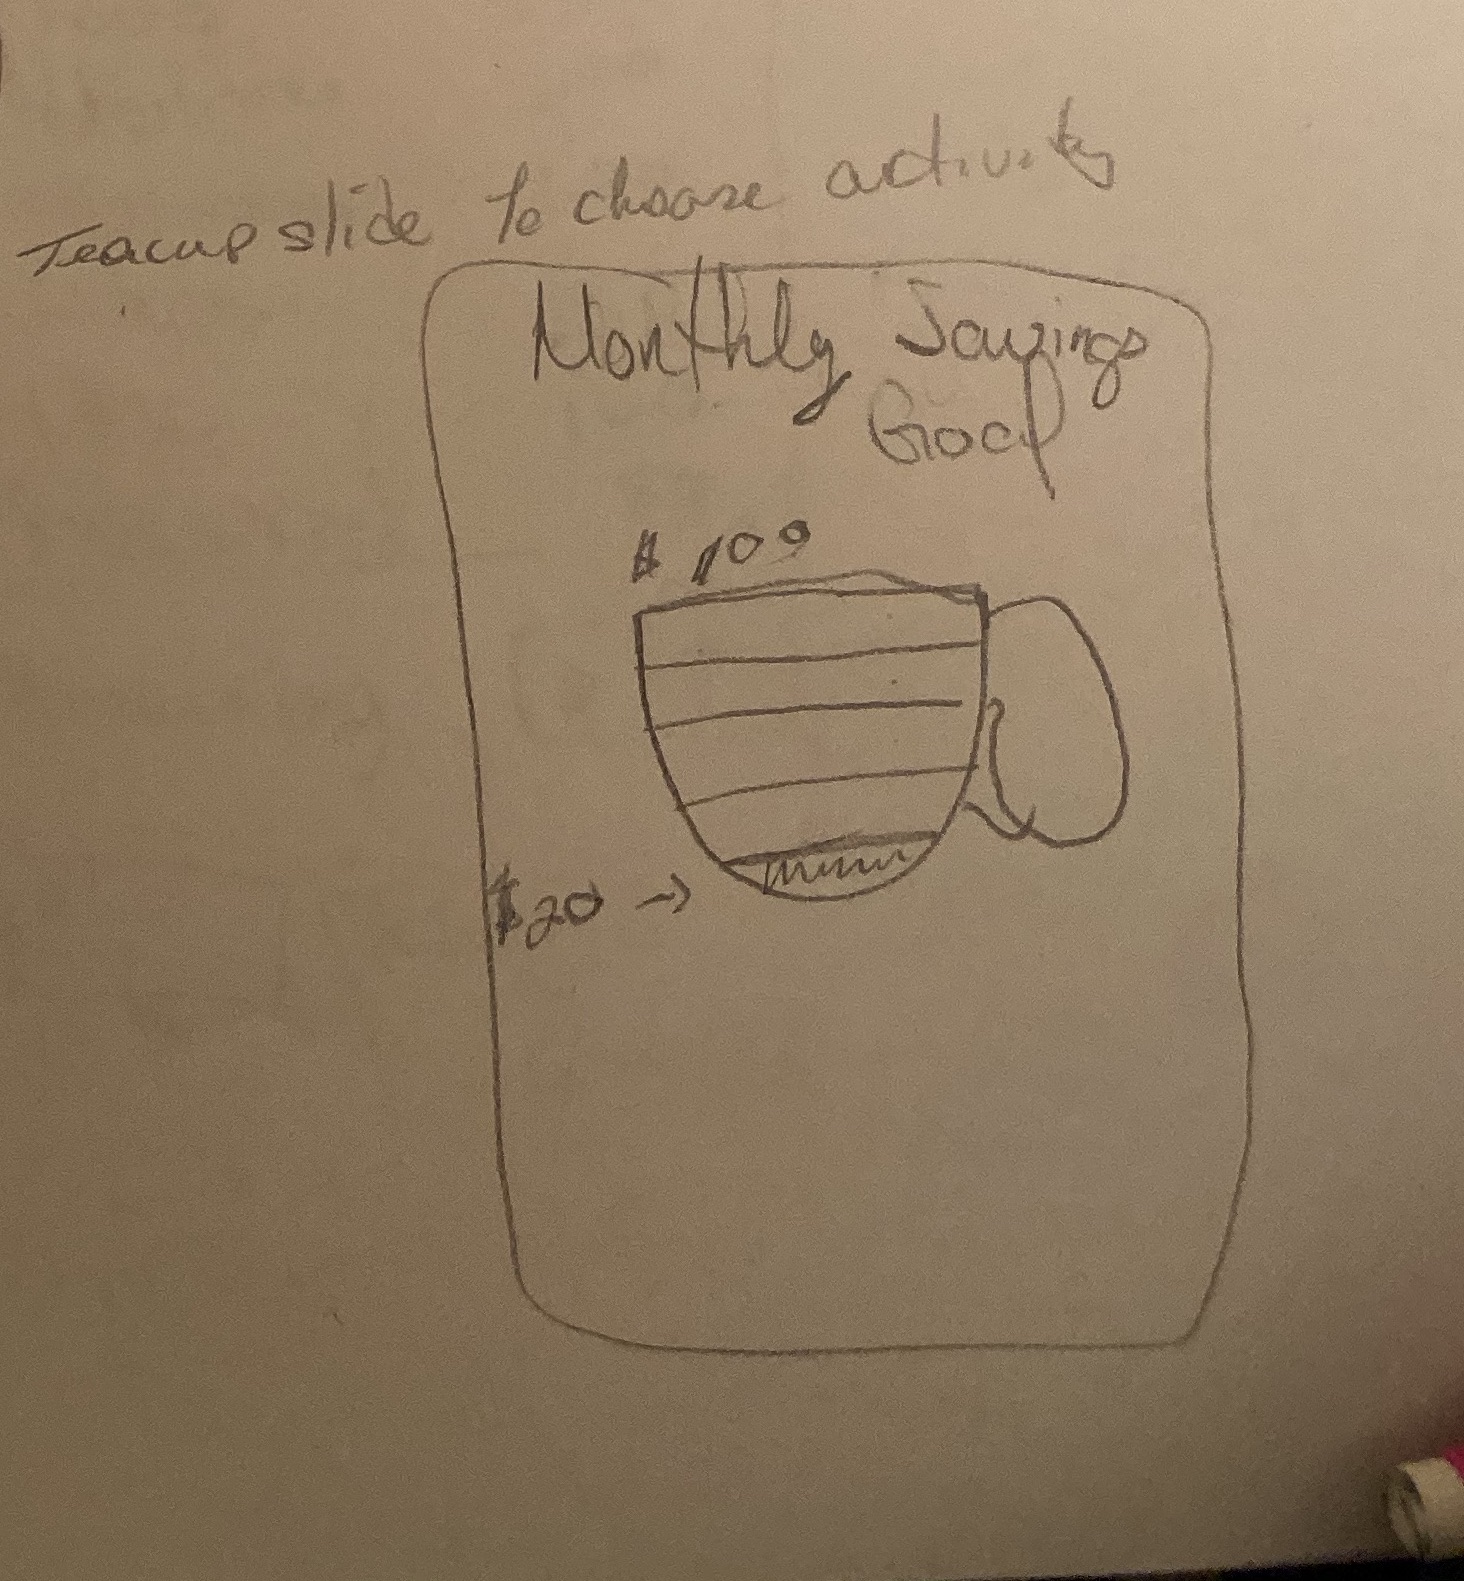 Teacup slide to choose activity
Monthly Savings
Goal
$ 100
$20 →